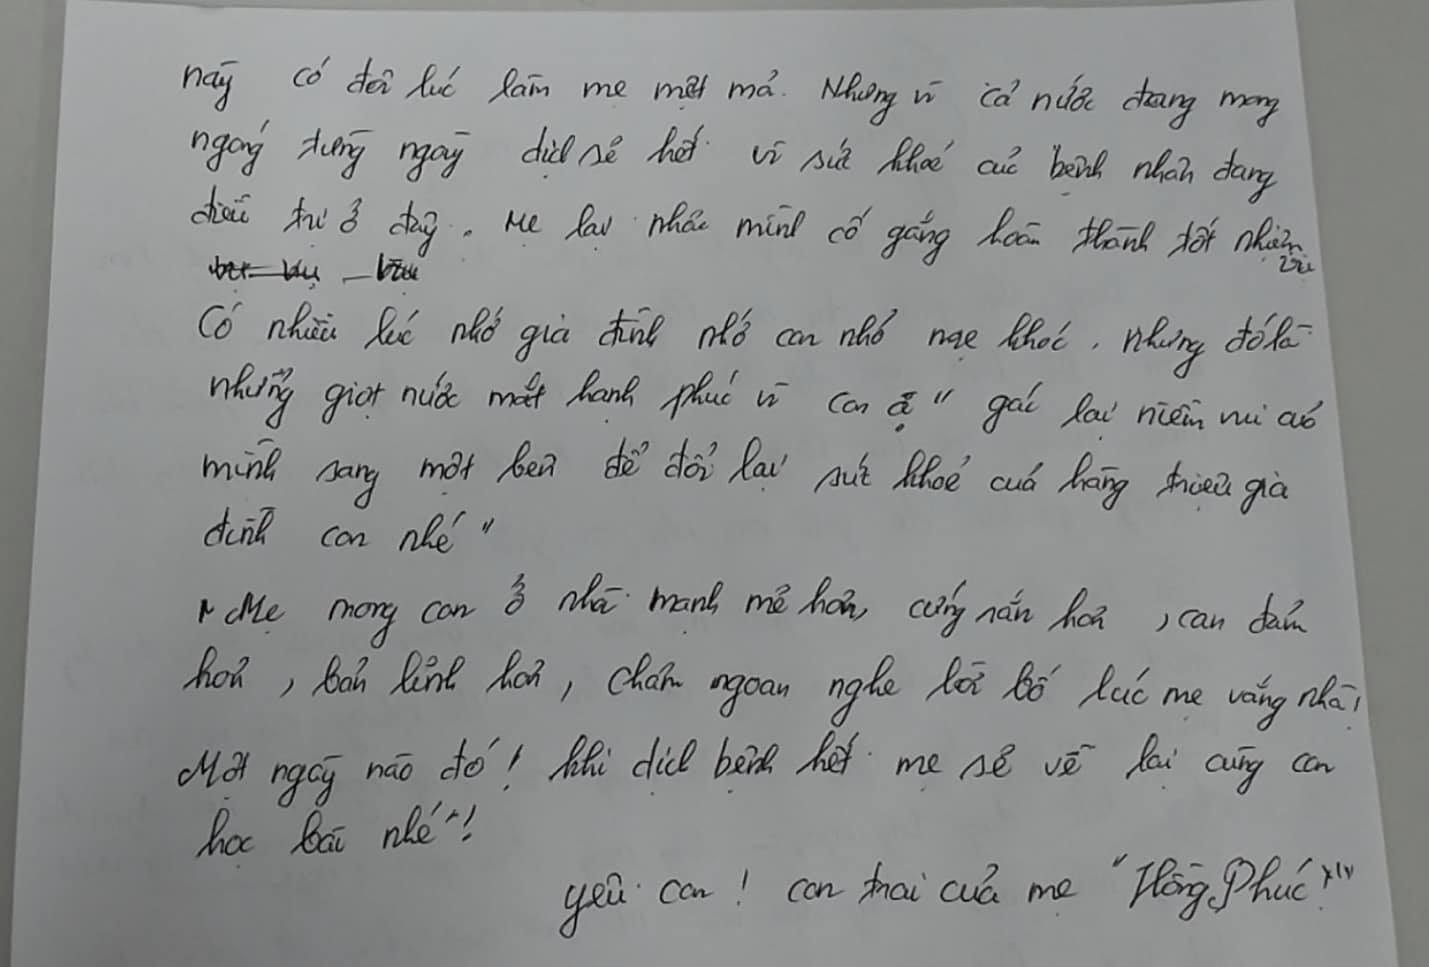 này có đôi lúc làm mẹ mệt mả. Nhưng vì cả nước đang mong
ngóng từng ngày dịch sẽ hết. vì sức khoẻ của bệnh nhân đang
điều trị ở đây. Mẹ lại nhắc mình cố gắng hoàn thành tốt nhiệm
vụ
Có nhiều lúc nhớ gia đình nhớ con nhớ mẹ khóc. Nhưng đó là
những giọt nước mắt hạnh phúc vì con ạ " gác lại niềm vui của
mình sang một bên để đổi lại sức khoẻ của hàng triệu gia
đình con nhé"
Mẹ mong con ở nhà mạnh mẽ hơn, cứng rắn hơn, can đảm
hơn, bản lĩnh hơn, chăm ngoan nghe lời bố lúc mẹ vắng nhà,
Một ngày nào đó! khi dịch bệnh hết mẹ sẽ về lại cùng con
học bài nhé"!
yêu con! con trai của mẹ "Hồng Phúc"